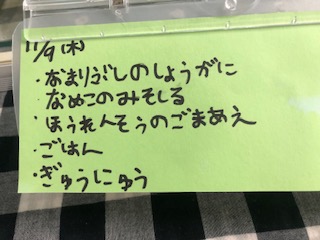 11/9(木)
・なまりぶしのしょうがに
・なめこのみそしる
・ほうれんそうのごまあえ
・ごはん
・ぎゅうにゅう